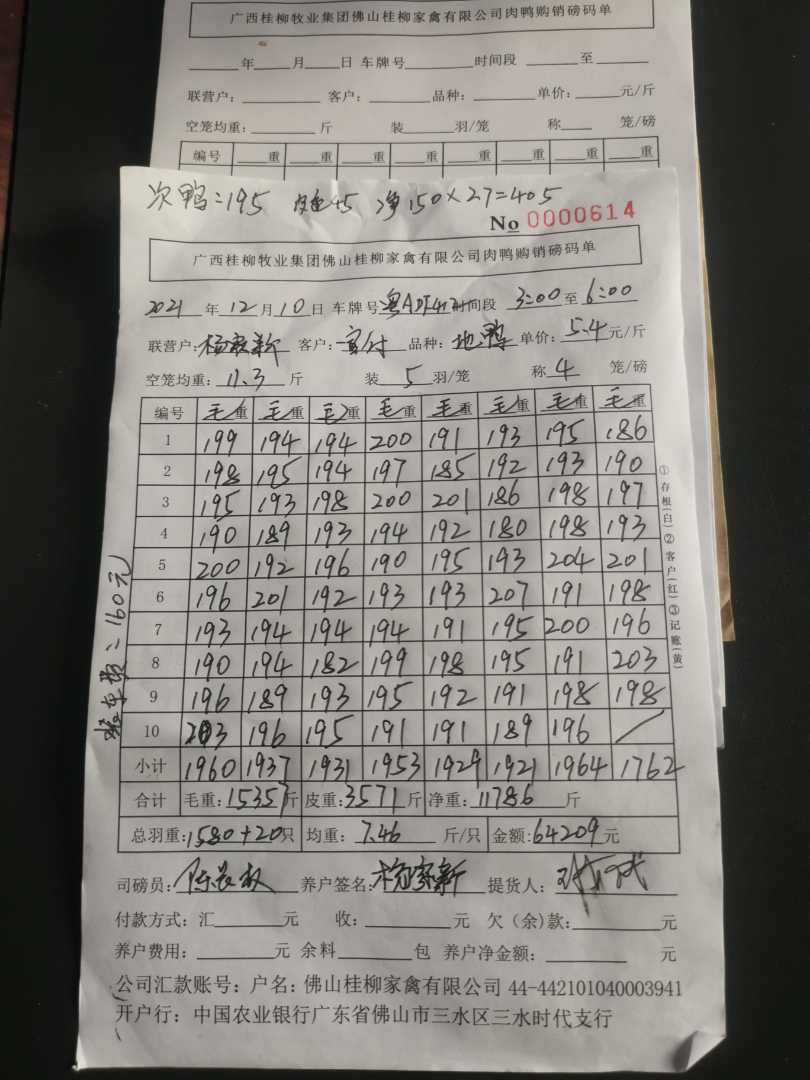 广西桂柳牧业集团佛山桂柳家禽有限公司肉鸭购销磅码单
年 月 日 车牌号 时间段 至
联营户: 客户: 品种: 单价: 元/斤
空笼均重: 斤 装 羽/笼 称 笼/磅
编号 重 重 重 重 重 重 重 重
次鸭:195 皮重45 净150×27=405
No 0000614
广西桂柳牧业集团佛山桂柳家禽有限公司肉鸭购销磅码单
2021 年 12 月 10 日 车牌号 时间段 3:00 至 6:00
联营户: 客户: 品种: 地鸭 单价: 5.4 元/斤
空笼均重: 11.3 斤 装 5 羽/笼 称 4 笼/磅
编号 毛重 毛重 毛重 毛重 毛重 毛重 毛重 毛重
1 199 194 194 200 191 193 195 186
2 198 195 194 197 185 192 193 190
3 195 193 198 200 201 186 198 197
4 190 189 193 194 192 180 198 193
5 200 192 196 190 195 193 204 201
6 196 201 192 193 193 207 191 198
7 193 194 194 194 191 195 200 196
8 190 194 182 199 198 195 191 203
9 196 189 193 195 192 191 198 198
10 203 196 195 191 191 189 196 /
小计 1960 1937 1931 1953 1929 1921 1964 1762
合计 毛重: 15357 斤 皮重: 3571 斤 净重: 11786 斤
总羽重: 1580+20 只 均重: 7.46 斤/只 金额: 64209 元
司磅员: 养户签名: 提货人:
付款方式: 汇 元 收: 元 欠(余)款: 元
养户费用: 元 余料 包 养户净金额: 元
公司汇款账号: 户名: 佛山桂柳家禽有限公司 44-442101040003941
开户行: 中国农业银行广东省佛山市三水区三水时代支行
①存根(白)②客户(红)③记账(黄)
装车费:160元